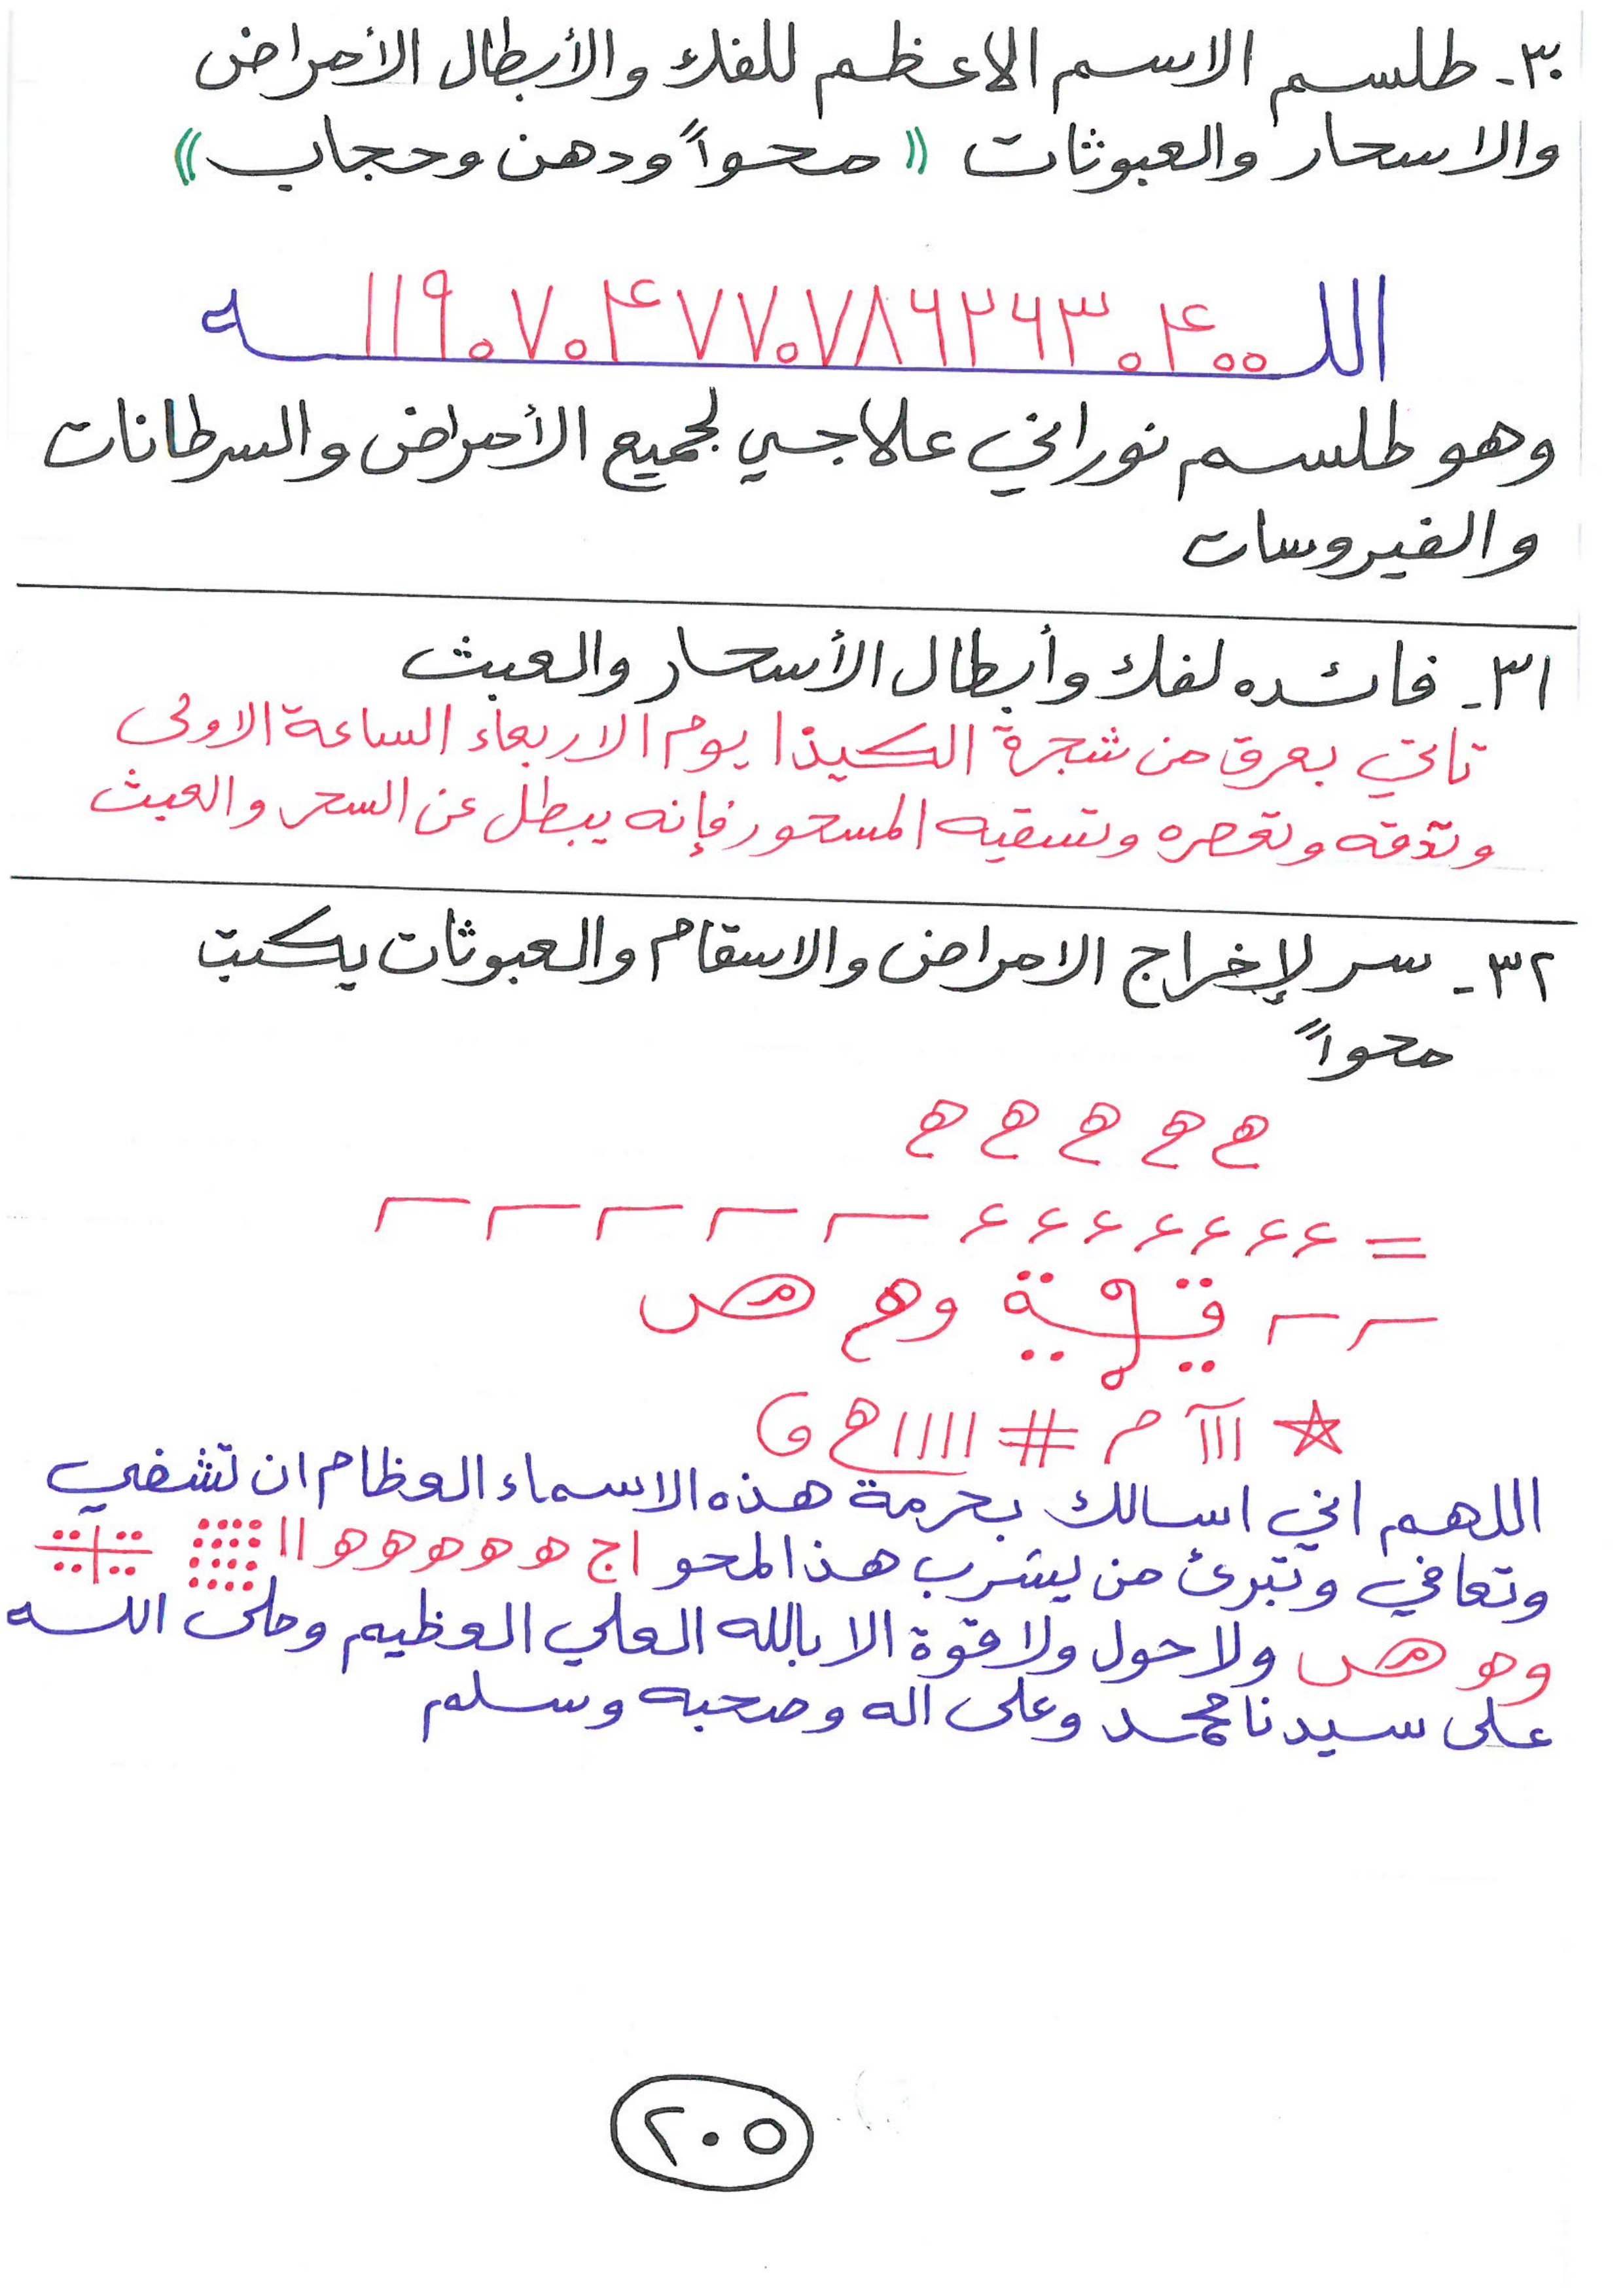 ٣٠- طلسم الاسم الاعظم للفك والأبطال الأمراض
والاسحار والعبوثات (( محواً ودهن وحجاب ))
اللـ ١١٩٠٧٠۴٧٧٠٧٨٦٢٦٣٠۴٠٠ ـه
وهو طلسم نوراني علاجي لجميع الأمراض والسرطانات
والفيروسات
٣١- فائده لفك وأبطال الأسحار والعبث
تاتي بعرق من شجرة الكيذا يوم الاربعاء الساعة الاولى
وتدقه وتعصره وتسقيه المسحور فإنه يبطل عن السحر والعبث
٣٢- سر لإخراج الامراض والاسقام والعبوثات يكتب
محواً
ھ ھ ھ ھ ھ
= ء ء ء ء ء ء ء
وھ هص
☆ ااآ م # اااا ھ
اللهم اني اسالك بحرمة هذه الاسماء العظام ان تشفي
وتعافي وتبرئ من يشرب هذا المحو اج ه ه ه ه ه اا
وه هص ولا حول ولا قوة الا بالله العلي العظيم وصلى الله
على سيدنا محمد وعلى اله وصحبه وسلم
٢٠٥